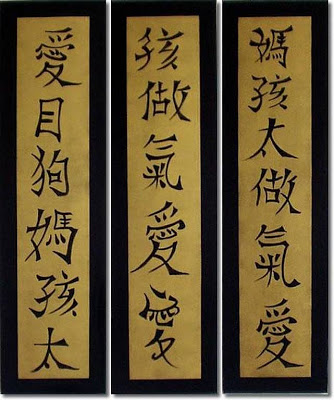 媽孩太做氣愛
孩做氣愛
愛目狗媽孩太